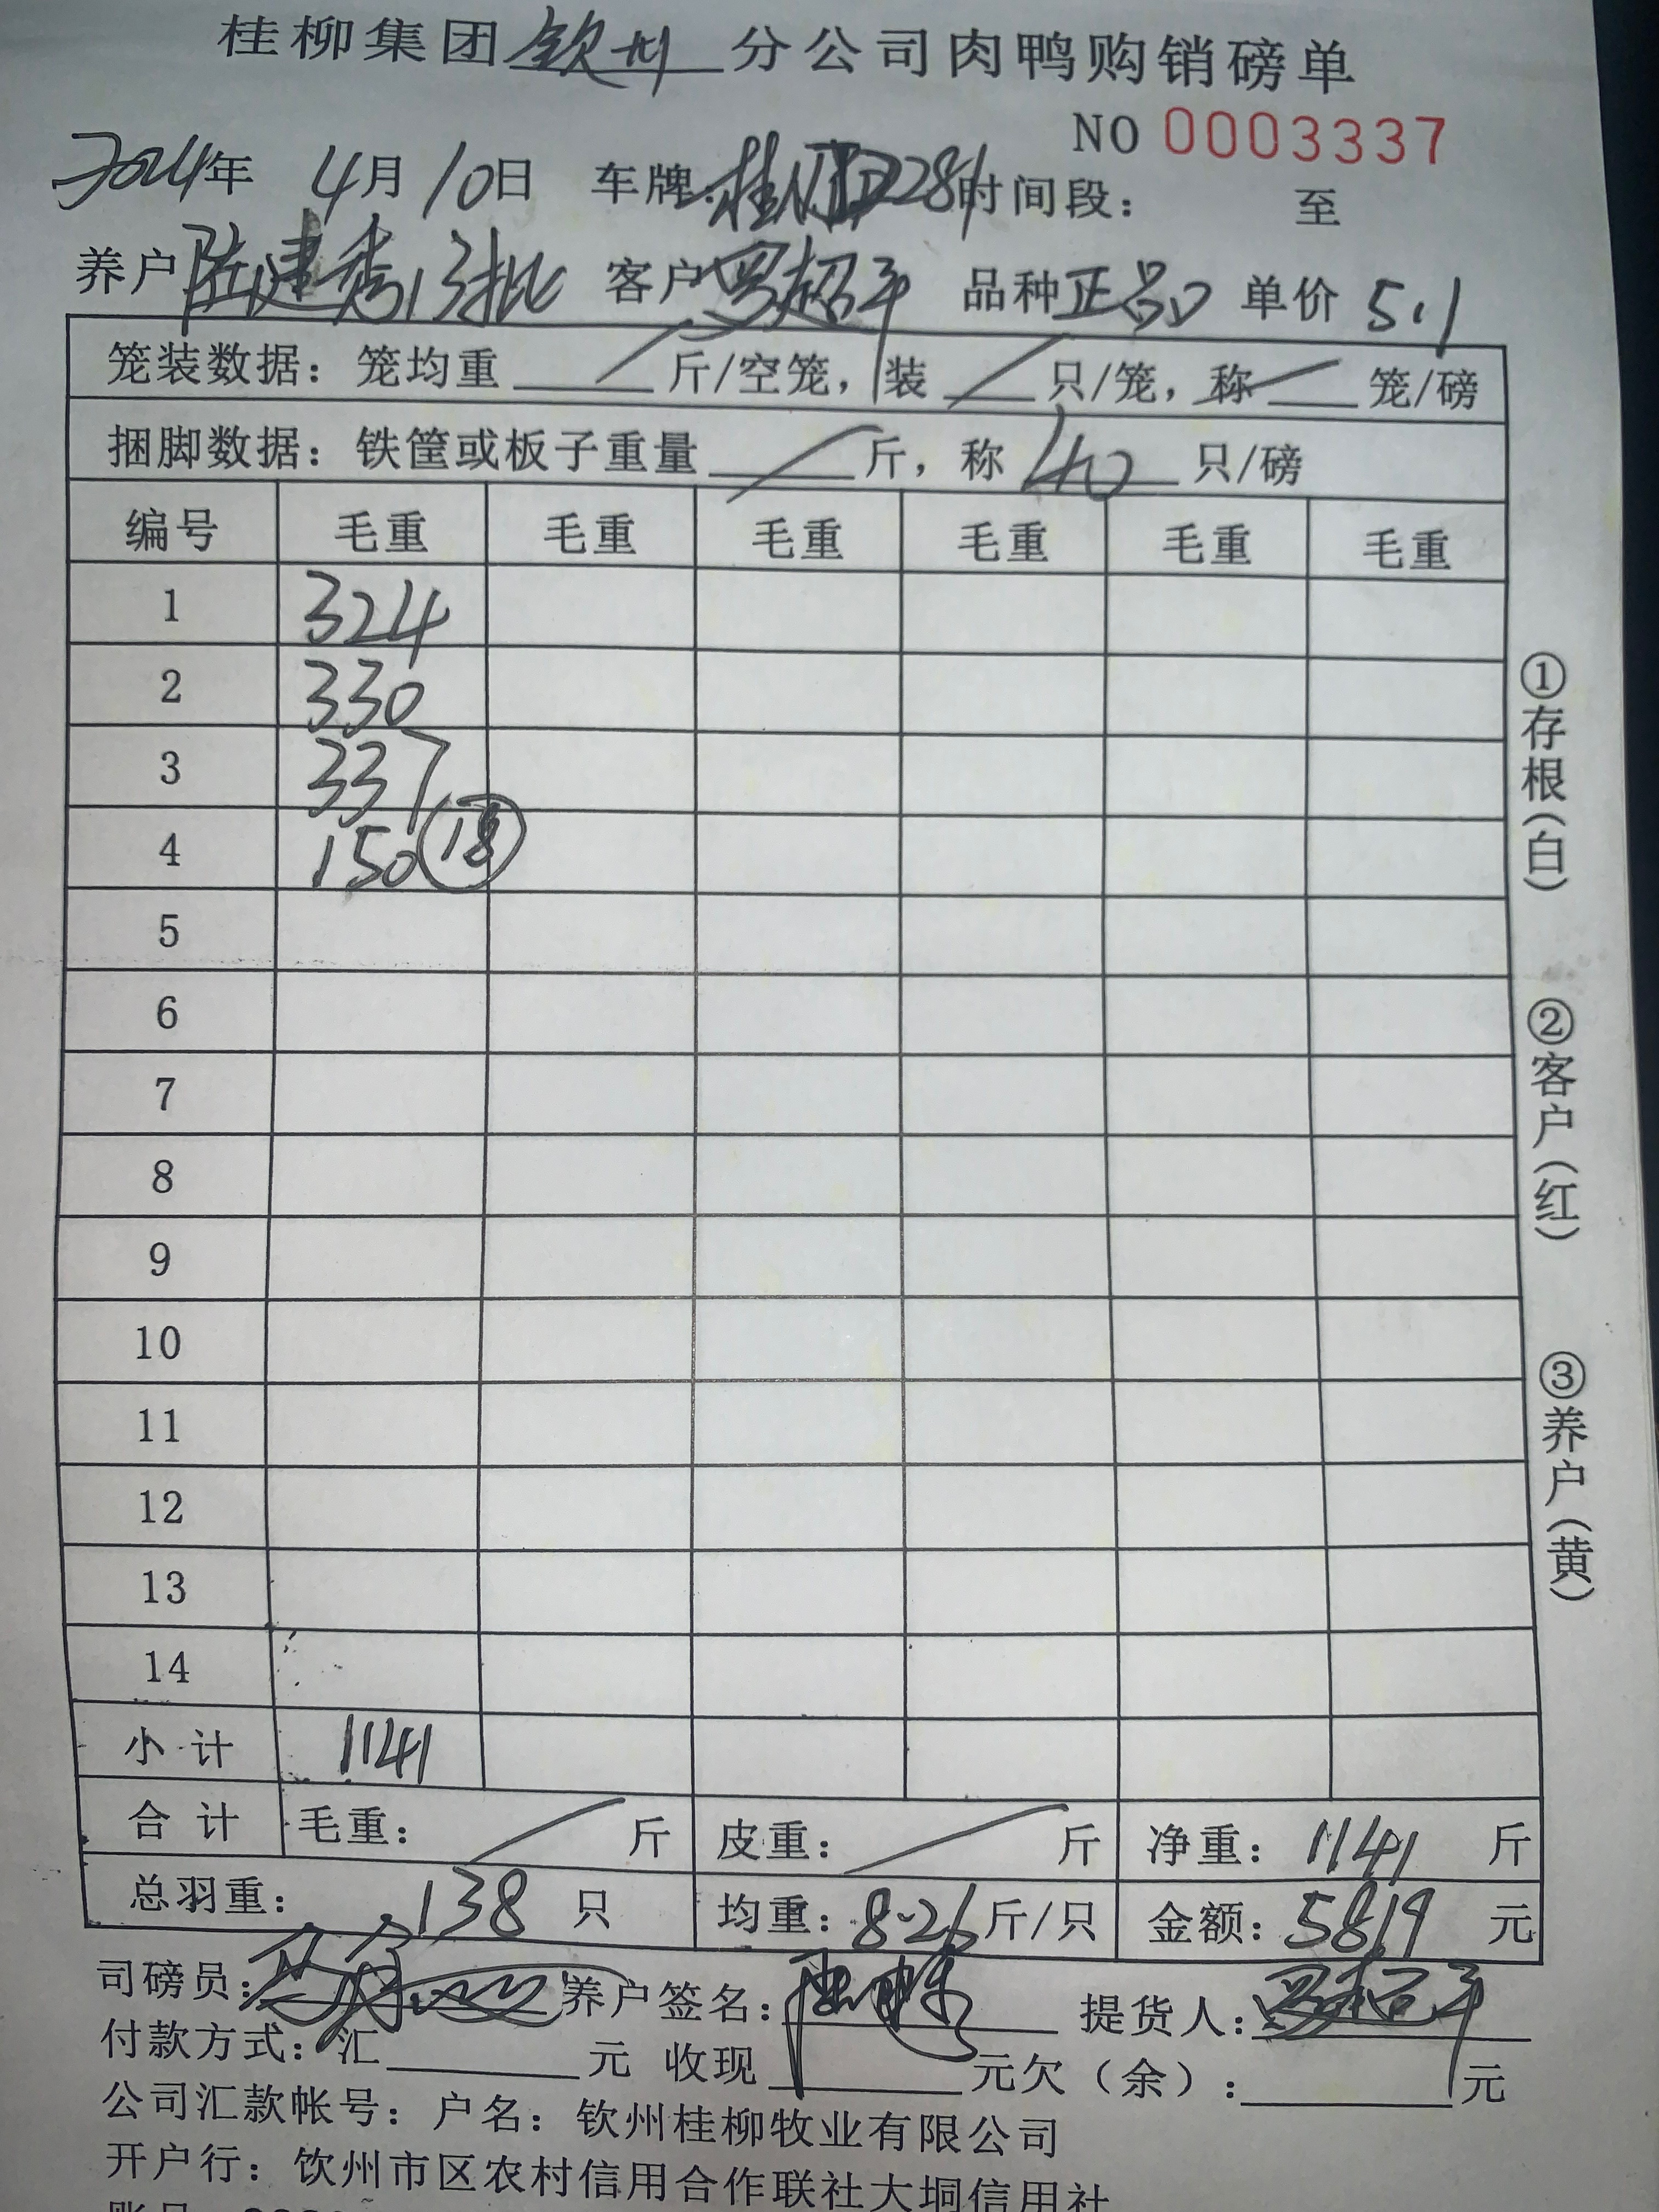 桂柳集团钦州分公司肉鸭购销磅单
NO 0003337
2024年 4月10日 车牌: 桂N 2281 时间段: 至
养户 陆建秀13批 客户 罗超平 品种 正品 单价 5.1
笼装数据: 笼均重 / 斤/空笼, 装 / 只/笼, 称 / 笼/磅
捆脚数据: 铁筐或板子重量 / 斤, 称 40 只/磅
编号 毛重 毛重 毛重 毛重 毛重 毛重
1 324
2 330
3 337
4 150 18
5
6
7
8
9
10
11
12
13
14
小计 1141
合计 毛重: / 斤 皮重: / 斤 净重: 1141 斤
总羽重: 138 只 均重: 8.26 斤/只 金额: 5819 元
司磅员: 养户签名: 提货人: 罗超平
付款方式: 汇 元 收现 元欠(余): 元
公司汇款帐号: 户名: 钦州桂柳牧业有限公司
开户行: 钦州市区农村信用合作联社大垌信用社
①存根(白)
②客户(红)
③养户(黄)